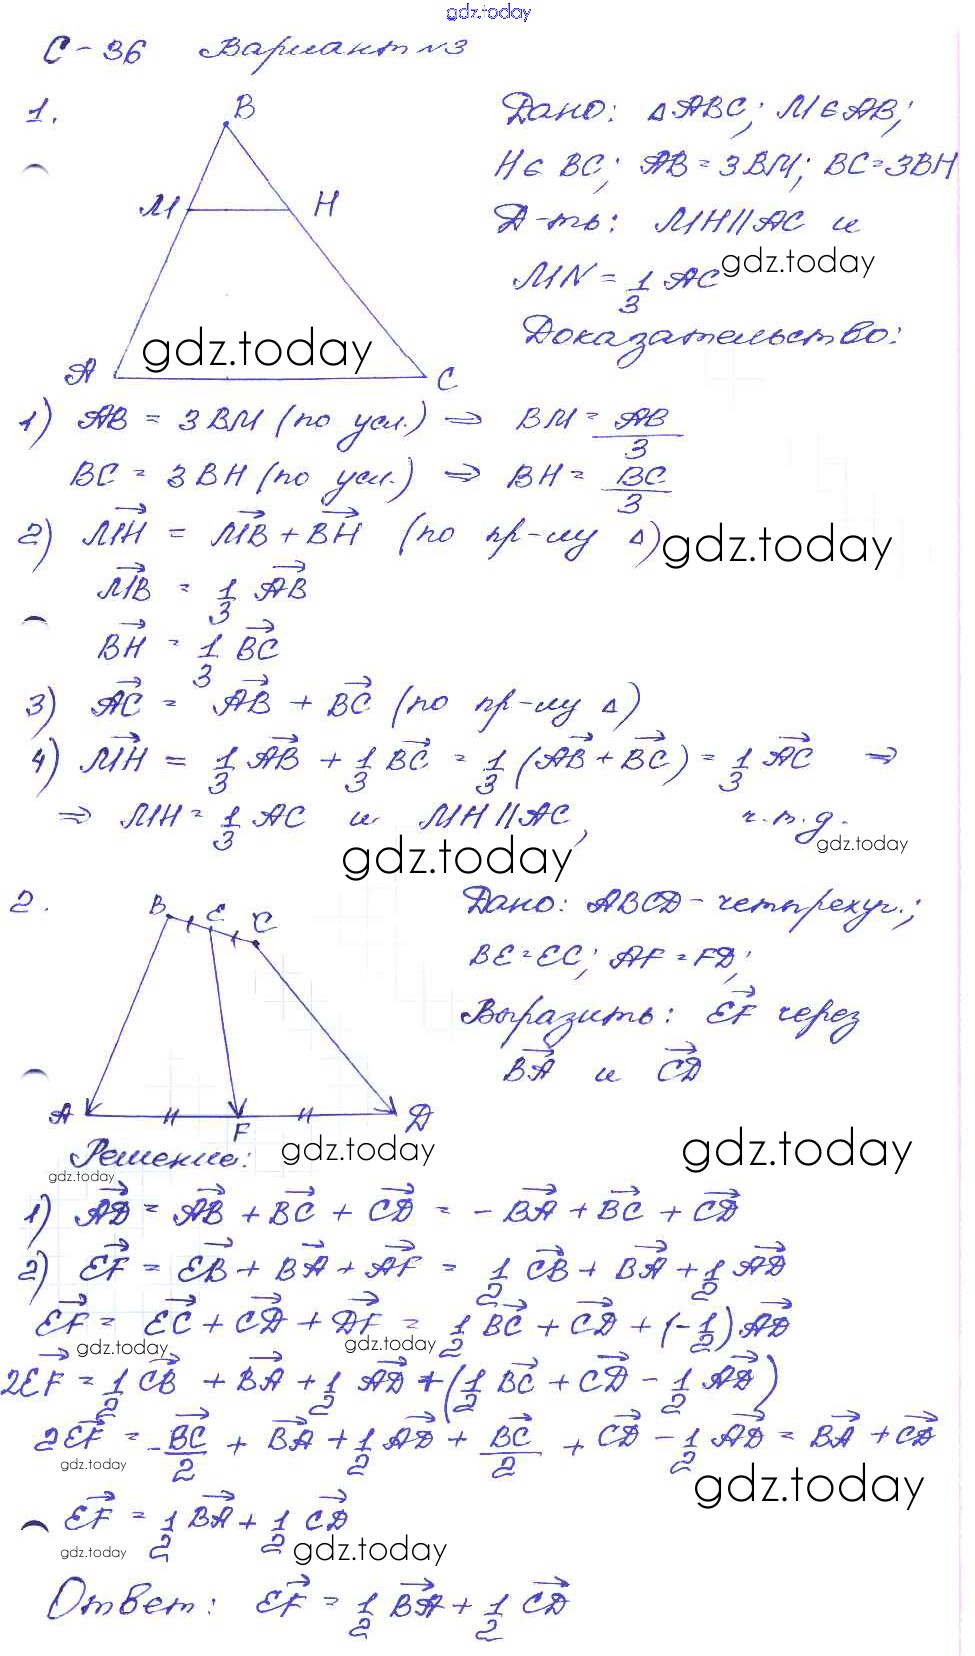 gdz.today
С-36 Вариант №3
1.
B
M H
A C
Дано: △ABC; M∈AB;
H∈BC; AB=3BM; BC=3BH
Д-ть: MH||AC и
MN = 1/3 AC
gdz.today
Доказательство:
gdz.today
1) AB = 3BM (по усл.) ⇒ BM = AB/3
BC = 3BH (по усл.) ⇒ BH = BC/3
2) MH⃗ = MB⃗ + BH⃗ (по пр-лу △)
gdz.today
MB⃗ = 1/3 AB⃗
BH⃗ = 1/3 BC⃗
3) AC⃗ = AB⃗ + BC⃗ (по пр-лу △)
4) MH⃗ = 1/3 AB⃗ + 1/3 BC⃗ = 1/3 (AB⃗ + BC⃗) = 1/3 AC⃗ ⇒
⇒ MH = 1/3 AC и MH||AC, ч.т.д.
gdz.today
gdz.today
2.
B E C
A F D
Дано: ABCD - четырехуг.;
BE=EC; AF=FD;
Выразить: EF⃗ через
BA⃗ и CD⃗
Решение:
gdz.today
gdz.today
gdz.today
1) AD⃗ = AB⃗ + BC⃗ + CD⃗ = -BA⃗ + BC⃗ + CD⃗
2) EF⃗ = EB⃗ + BA⃗ + AF⃗ = 1/2 CB⃗ + BA⃗ + 1/2 AD⃗
EF⃗ = EC⃗ + CD⃗ + DF⃗ = 1/2 BC⃗ + CD⃗ + (-1/2) AD⃗
gdz.today
gdz.today
2EF⃗ = 1/2 CB⃗ + BA⃗ + 1/2 AD⃗ + (1/2 BC⃗ + CD⃗ - 1/2 AD⃗)
2EF⃗ = -BC⃗/2 + BA⃗ + 1/2 AD⃗ + BC⃗/2 + CD⃗ - 1/2 AD⃗ = BA⃗ + CD⃗
gdz.today
gdz.today
EF⃗ = 1/2 BA⃗ + 1/2 CD⃗
gdz.today
gdz.today
Ответ: EF⃗ = 1/2 BA⃗ + 1/2 CD⃗